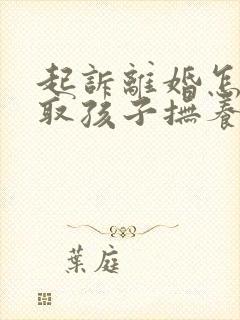 起訴離婚怎
取孩子撫養
葉庭